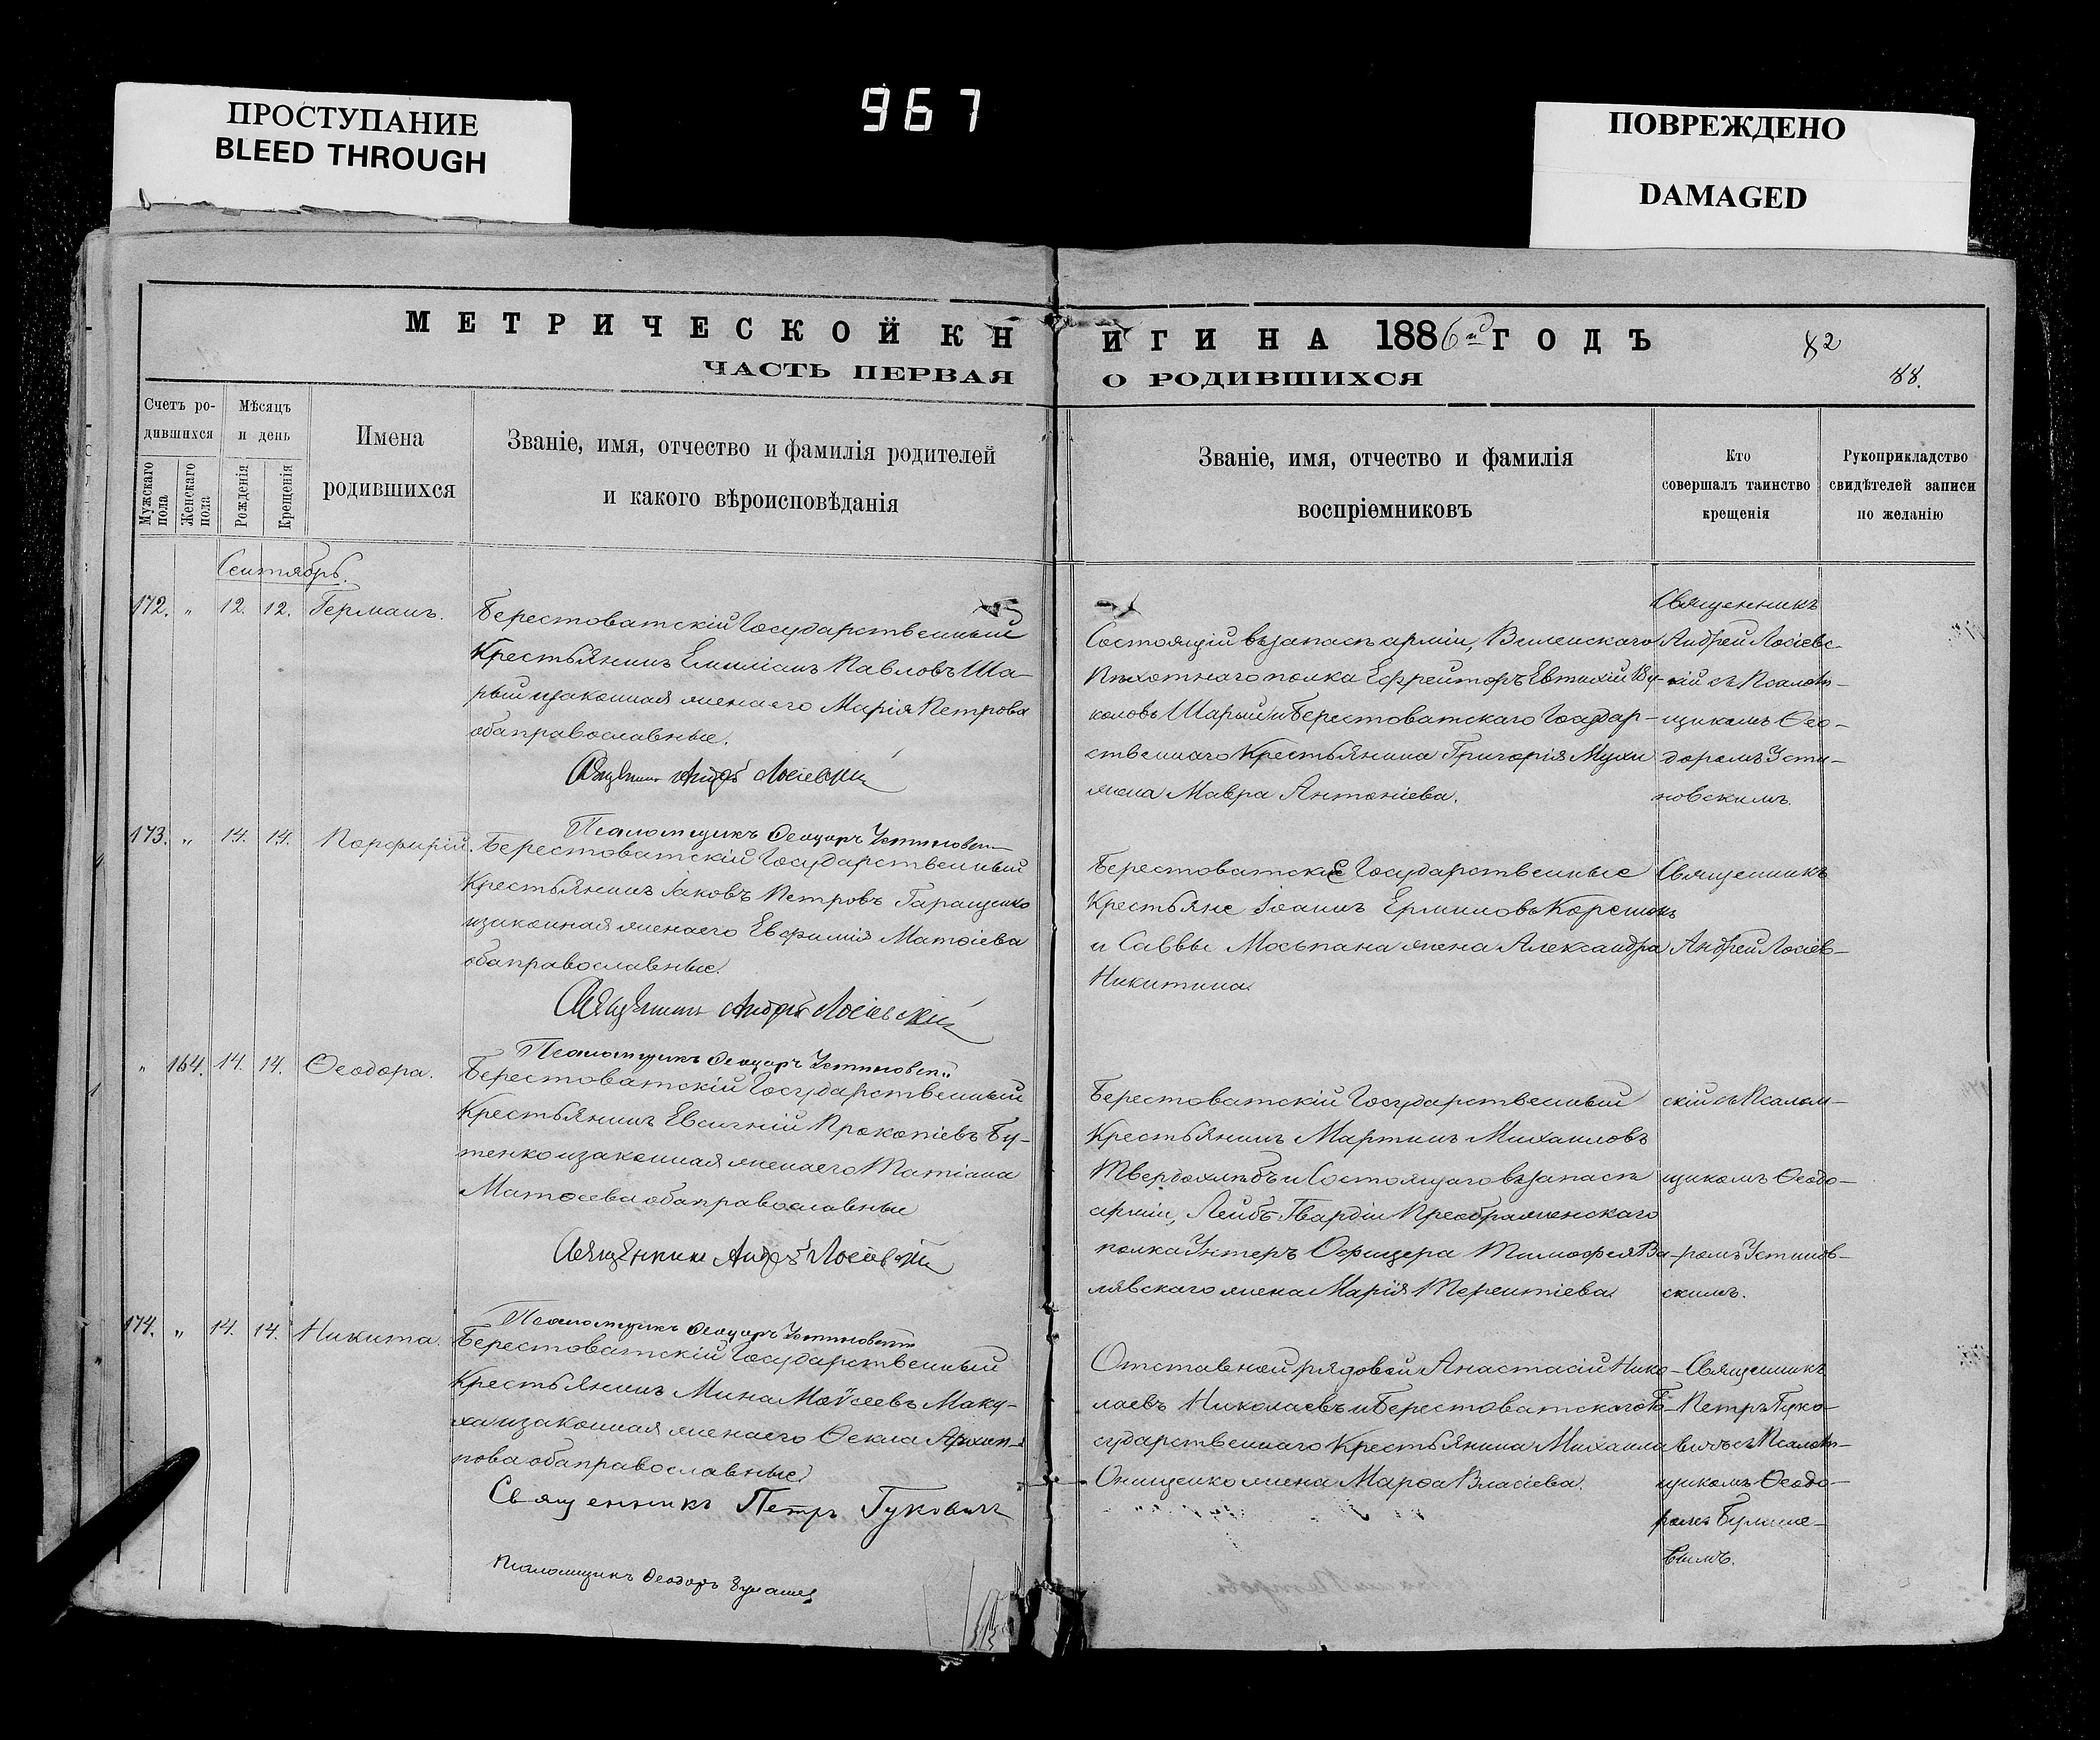 ПРОСТУПАНИЕ
BLEED THROUGH
967
ПОВРЕЖДЕНО
DAMAGED
МЕТРИЧЕСКОЙ КНИГИ НА 1886й ГОДЪ
82
ЧАСТЬ ПЕРВАЯ О РОДИВШИХСЯ
88.
Счетъ ро-
дившихся
Мужскаго пола
Женскаго пола
Мѣсяцъ
и день
Рожденія
Крещенія
Имена
родившихся
Званіе, имя, отчество и фамилія родителей
и какого вѣроисповѣданія
Званіе, имя, отчество и фамилія
воспріемниковъ
Кто
совершалъ таинство
крещенія
Рукоприкладство
свидѣтелей записи
по желанію
Сентябрь.
172. " 12. 12. Германъ.
Берестоватскій Государственный
Крестьянинъ Емиліанъ Павловъ Ша-
рый и законная жена его Марія Петрова
оба православные.
Священникъ Андрей Лосіевскій
Псаломщикъ Ѳеодоръ Устиновскій
Состоящій въ запасѣ арміи, Виленскаго
Пѣхотнаго полка Ефрейторъ Евтихій Ву-
коловъ Шарый и Берестоватскаго Государ-
ственнаго Крестьянина Григорія Мухи
жена Мавра Антоніева.
Священникъ
Андрей Лосіевс-
кій съ Псалом-
щикомъ Ѳео-
доромъ Усти-
новскимъ.
173. " 14. 14. Порфирій.
Берестоватскій Государственный
Крестьянинъ Іаковъ Петровъ Гаращенко
и законная жена его Евфимія Матѳіева
оба православные.
Священникъ Андрей Лосіевскій
Псаломщикъ Ѳеодоръ Устиновскій
Берестоватскіе Государственные
Крестьяне Іоаннъ Ермиловъ
и Саввы Мосьпана жена Александра
Никитина.
Священникъ
Андрей Лосіев-
" 164. 14. 14. Ѳеодора.
Берестоватскій Государственный
Крестьянинъ Евсигній Прокопіевъ Бу-
тенко и законная жена его Татіана
Матѳеева оба православные
Священникъ Андрей Лосіевскій
Псаломщикъ Ѳеодоръ Устиновскій
Берестоватскій Государственный
Крестьянинъ Мартинъ Михаиловъ
Твердохлѣбъ и Состоящаго въ запасѣ
арміи, Лейбъ-Гвардіи Преображенскаго
полка Унтеръ Офицера Тимофея Ва-
лявскаго жена Марія Терентіева.
скій съ Псалом-
щикомъ Ѳеодо-
ромъ Устинов-
скимъ.
174. " 14. 14. Никита.
Берестоватскій Государственный
Крестьянинъ Мина Моѵсеевъ Маку-
ха и законная жена его Ѳекла Архип-
пова оба православные
Священникъ Петръ Гуковичъ
Псаломщикъ Ѳеодоръ
Отставной рядовой Анастасій Нико-
лаевъ Николаевъ и Берестоватскаго Го-
сударственнаго Крестьянина Михаила
Онищенко жена Марѳа Власіева.
Священникъ
Петръ Гуко-
вичъ съ Псалом-
щикомъ Ѳеодо-
ромъ